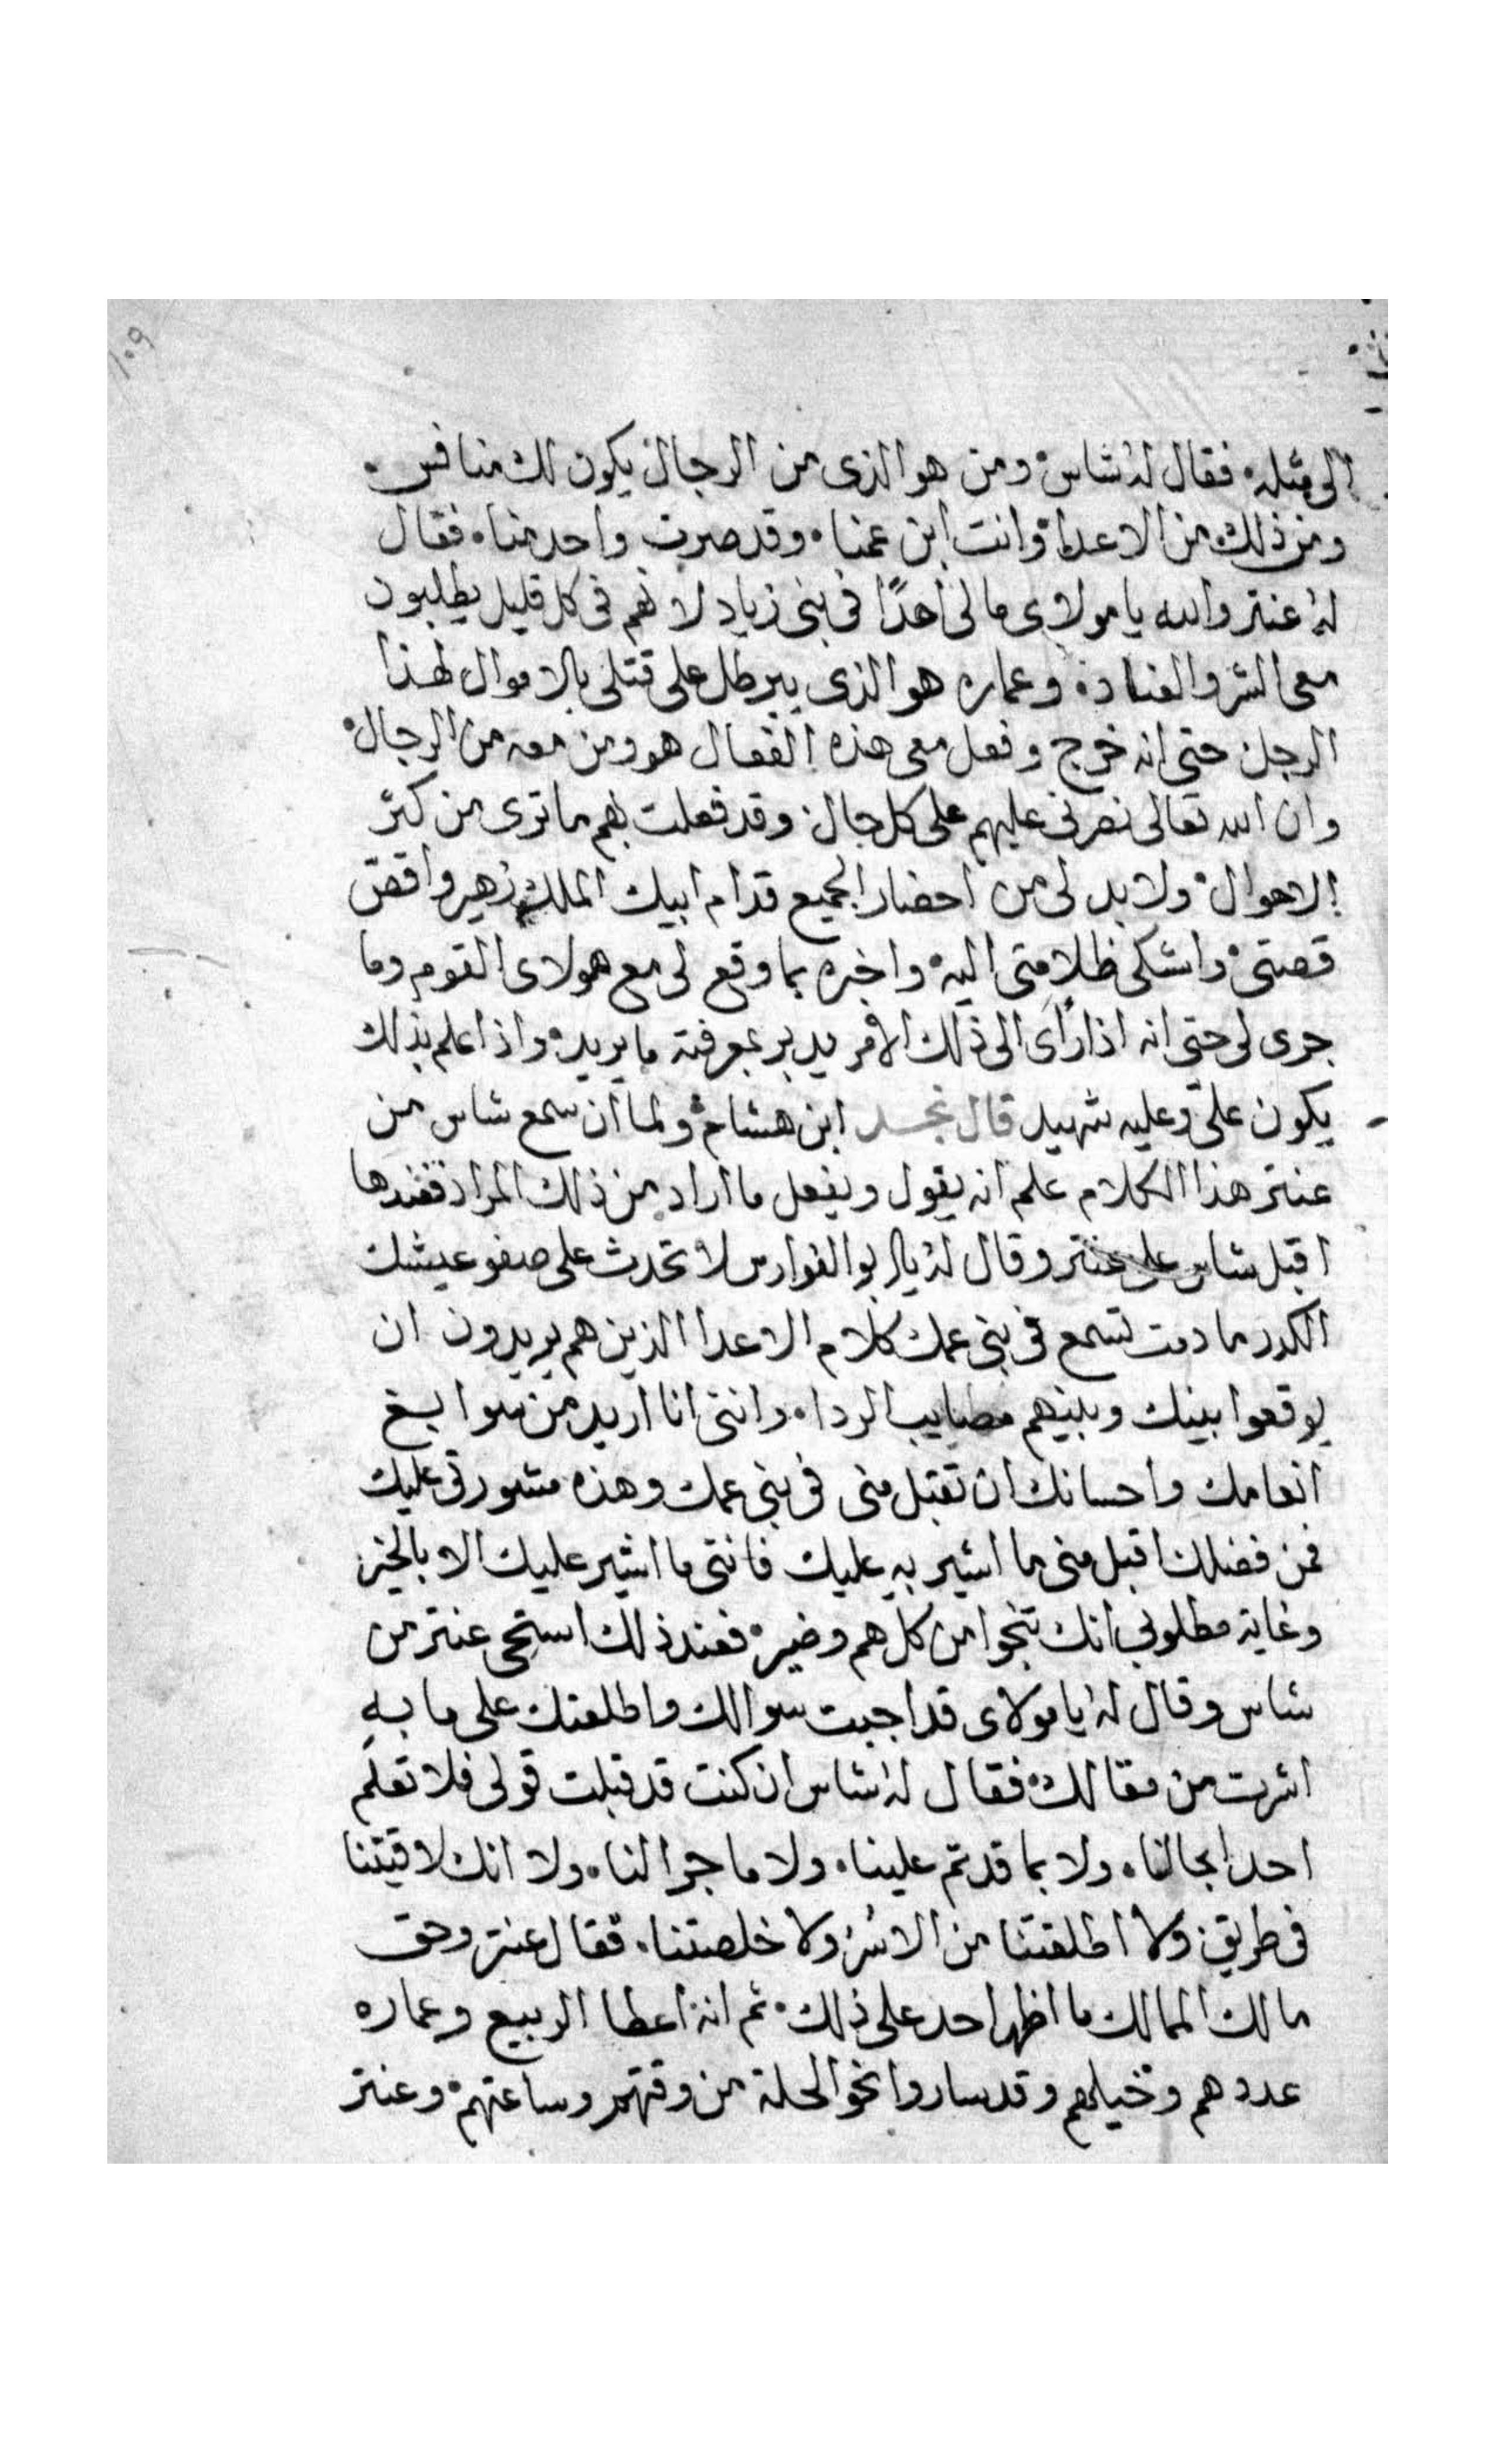 ١٠٩
الى مثله، فقال له شاس، ومن هو الذى من الرجال يكون لك منافس،
ومن ذلك من الاعدا، وانت ابن عمنا، وقد صرت واحد منا، فقال
له عنتر والله يا مولاى ما لى احدًا فى بنى زياد لانهم فى كل قليل يطلبون
معى الشر والعناد، وعماره هو الذى يبرطل على قتلى بالاموال لهذا
الرجل حتى انه خرج وفعل معى هذه الفعال هو ومن معه من الرجال،
وان الله تعالى نصرنى عليهم على كل حال، وقد فعلت بهم ما ترى من كثر
الاهوال، ولا بد لى من احضار الجميع قدام ابيك الملك زهير واقص
قصتى، واشكى ظلامتى اليه، واخبره بما وقع لى مع هولاى القوم وما
جرى لى حتى انه اذا رأى الى ذلك الامر يدبر بمعرفته ما يريد، واذا علم بذلك
يكون علىّ وعليه شهيد قال نجد ابن هشام، ولما ان سمع شاس من
عنتر هذا الكلام علم انه يقول ويفعل ما اراد من ذلك المراد فعندها
اقبل شاس على عنتر وقال له يا ابو الفوارس لا تحدث على صفو عيشك
الكدر ما دمت تسمع فى بنى عمك كلام الاعدا الذين هم يريدون ان
يوقعوا بينك وبينهم مصايب الردا، واننى انا اريد من سوابغ
انعامك واحسانك ان تقبل منى فى بنى عمك وهذه مشورتى عليك
فمن فضلك اقبل منى ما اشير به عليك فاننى ما اشير عليك الا بالخير
وغاية مطلوبى انك تنجوا من كل هم وضير، فعند ذلك استحى عنتر من
شاس وقال له يا مولاى قد اجبت سوالك واطلعتك على ما به
اشرت من مقالك، فقال له شاس ان كنت قد قبلت قولى فلا تعلم
احدا بحالنا، ولا بما قد تم علينا، ولا ما جرا لنا، ولا انك لاقيتنا
فى طريق ولا اطلقتنا من الاسر ولا خلصتنا، فقال عنتر وحق
مالك الممالك ما اظهر احد على ذلك، ثم انه اعطا الربيع وعماره
عددهم وخيلهم وقد ساروا نحو الحلة من وقتهم وساعتهم، وعنتر